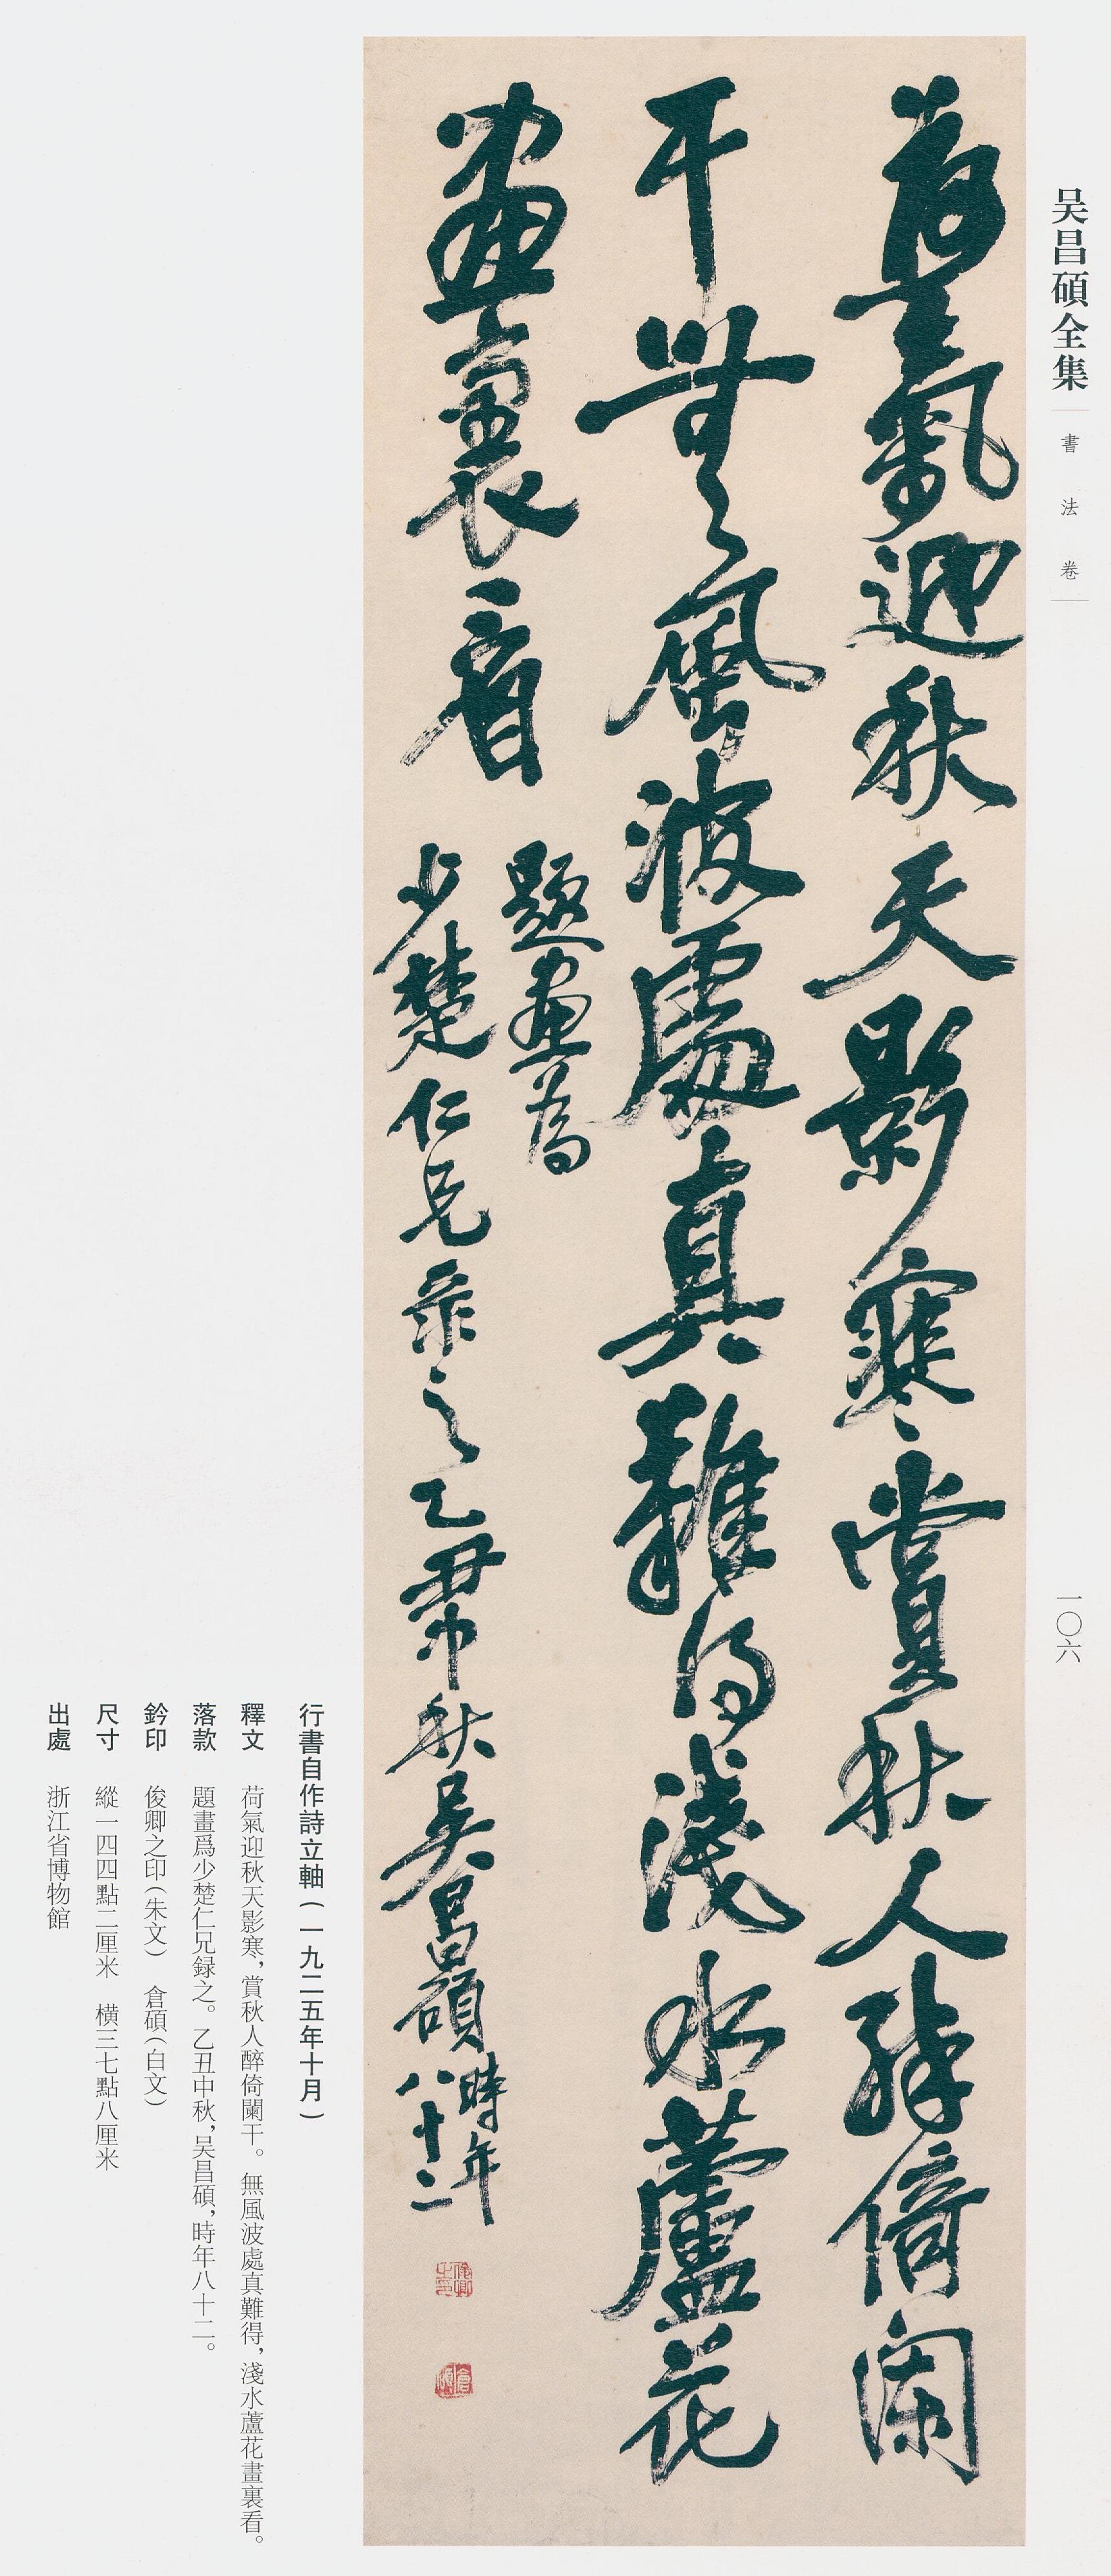 吴昌碩全集
書法卷
一〇六
荷氣迎秋天影寒賞秋人醉倚闌
干無風波處真難得淺水蘆花
畫裏看
題畫為
少楚仁兄录之乙丑中秋吴昌碩時年
八十二
俊卿之印
倉碩
行書自作詩立軸(一九二五年十月)
釋文 荷氣迎秋天影寒,賞秋人醉倚闌干。無風波處真難得,淺水蘆花畫裏看。
落款 題畫爲少楚仁兄録之。乙丑中秋,吴昌碩,時年八十二。
鈐印 俊卿之印(朱文) 倉碩(白文)
尺寸 縱一四四點二厘米 橫三七點八厘米
出處 浙江省博物館